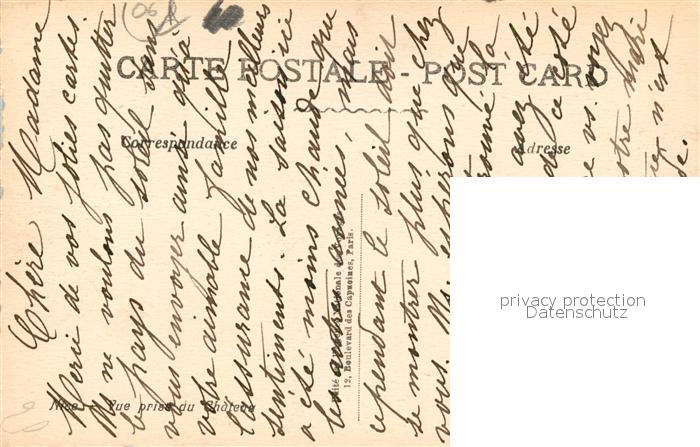 CARTE POSTALE - POST CARD
Correspondance
Adresse
Chère Madame
Merci de vos jolies cartes.
Ns ne voulons pas quitter
le pays du soleil sans
vous envoyer ainsi qu'à
votre aimable famille
l'assurance de nos meilleurs
sentiments. La saison ici
a été moins chaude que
les autres années, mais
cependant le soleil doit
se montrer plus que chez
vous. Ns. espérons que
trouvé la
avez été
de ce côté
vs. avez
votre
n'est
12, Boulevard des Capucines, Paris.
Nice - Vue prise du Château
06
privacy protection
Datenschutz